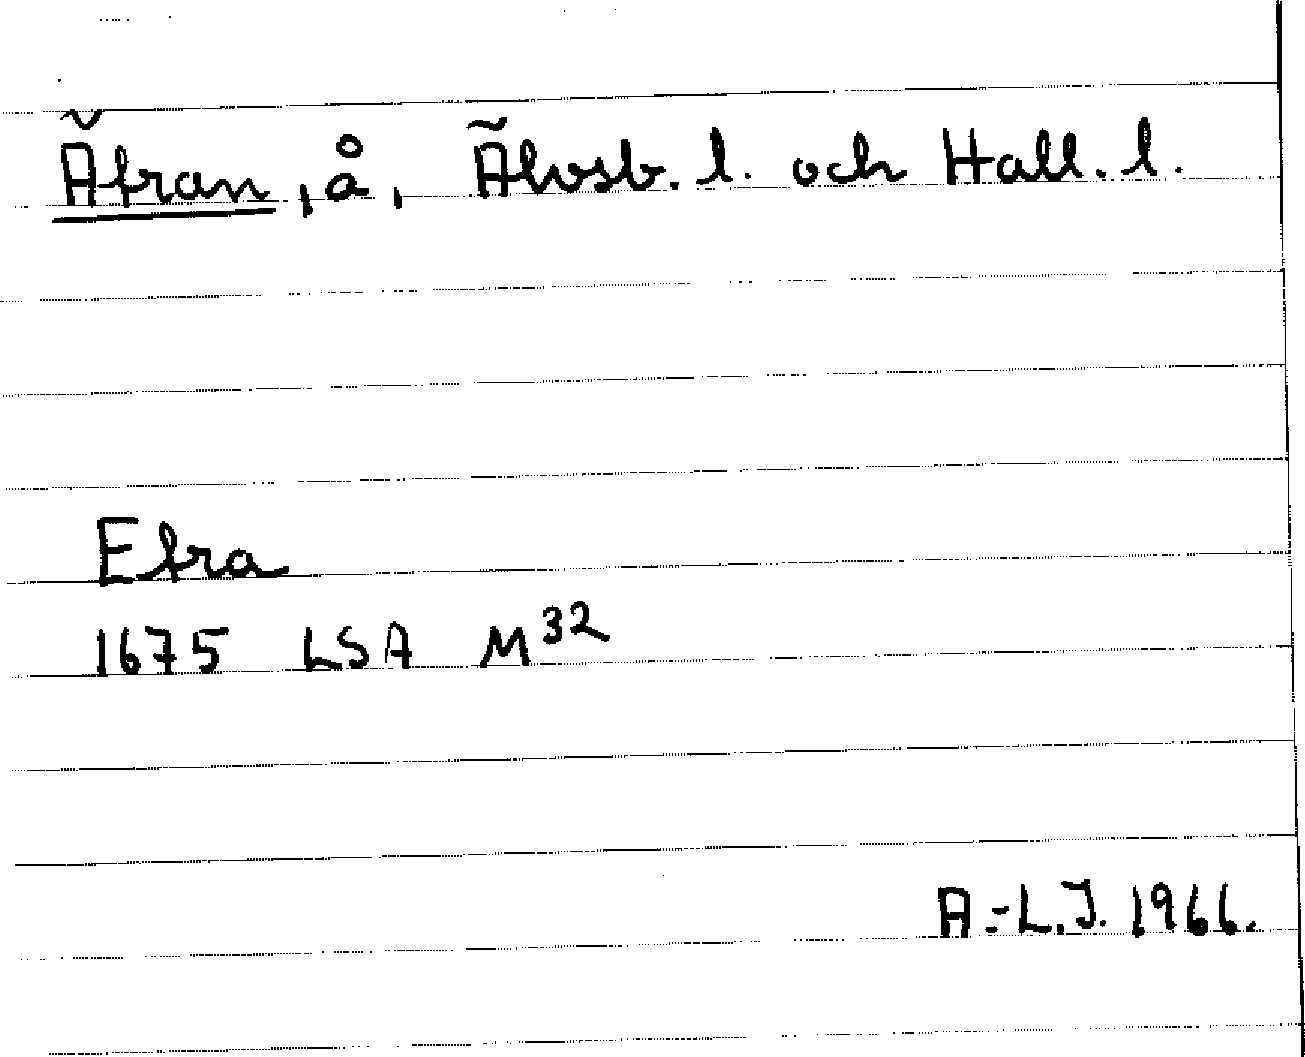 Äfran, å, Älvsb. l. och Hall. l.
Efra
1675 LSA M32
A.-L.J. 1966.